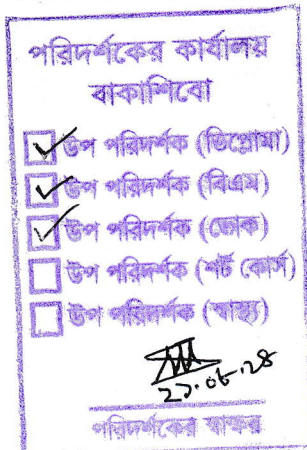 পরিদর্শকের কার্যালয়
বাকাশিবো
উপ পরিদর্শক (ডিপ্লোমা)
উপ পরিদর্শক (বিএম)
উপ পরিদর্শক (ভোক)
উপ পরিদর্শক (শর্ট কোর্স)
উপ পরিদর্শক (স্বাস্থ্য)
পরিদর্শকের স্বাক্ষর